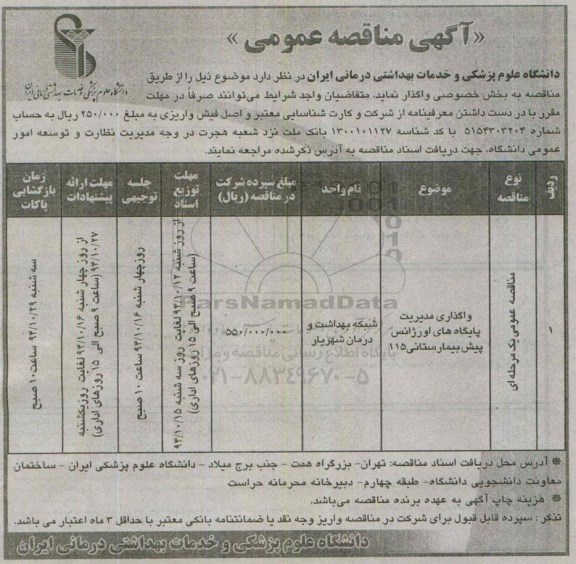 «آگهی مناقصه عمومی»
دانشگاه علوم پزشکی و خدمات بهداشتی درمانی ایران
دانشگاه علوم پزشکی و خدمات بهداشتی درمانی ایران در نظر دارد موضوع ذیل را از طریق
مناقصه به بخش خصوصی واگذار نماید. متقاضیان واجد شرایط می‌توانند صرفاً در مهلت
مقرر با در دست داشتن معرفینامه از شرکت و کارت شناسایی معتبر و اصل فیش واریزی به مبلغ ۲۵۰/۰۰۰ ریال به حساب
شماره ۵۱۵۴۳۰۳۲۰۴ با کد شناسه ۱۳۰۰۱۰۱۱۲۷ بانک ملت نزد شعبه هجرت در وجه مدیریت نظارت و توسعه امور
عمومی دانشگاه، جهت دریافت اسناد مناقصه به آدرس ذکر شده مراجعه نمایند.
ردیف
نوع مناقصه
موضوع
نام واحد
مبلغ سپرده شرکت در مناقصه (ریال)
مهلت توزیع اسناد
جلسه توجیهی
مهلت ارائه پیشنهادات
زمان بازگشایی پاکات
۱
مناقصه عمومی یک مرحله ای
واگذاری مدیریت
پایگاه های اورژانس
پیش بیمارستانی ۱۱۵
شبکه بهداشت و
درمان شهریار
۵۵۰/۰۰۰/۰۰۰
از روز شنبه ۹۳/۱۰/۱۳ لغایت روز سه شنبه ۹۳/۱۰/۱۵
(ساعت ۹ صبح الی ۱۵ روزهای اداری)
روز چهارشنبه ۹۳/۱۰/۱۶ ساعت ۱۰ صبح
از روز چهار شنبه ۹۳/۱۰/۱۶ لغایت روز یکشنبه
۹۳/۱۰/۲۷ (ساعت ۹ صبح الی ۱۵ روزهای اداری)
سه شنبه ۹۳/۱۰/۲۹ ساعت ۱۰ صبح
ParsNamadData
پایگاه اطلاع رسانی مناقصه و مزایده
۰۲۱-۸۸۳۴۹۶۷۰-۵
* آدرس محل دریافت اسناد مناقصه: تهران- بزرگراه همت - جنب برج میلاد - دانشگاه علوم پزشکی ایران - ساختمان
معاونت دانشجویی دانشگاه- طبقه چهارم- دبیرخانه محرمانه حراست
* هزینه چاپ آگهی به عهده برنده مناقصه می‌باشد.
تذکر: سپرده قابل قبول برای شرکت در مناقصه واریز وجه نقد یا ضمانتنامه بانکی معتبر با حداقل ۳ ماه اعتبار می باشد.
دانشگاه علوم پزشکی و خدمات بهداشتی درمانی ایران